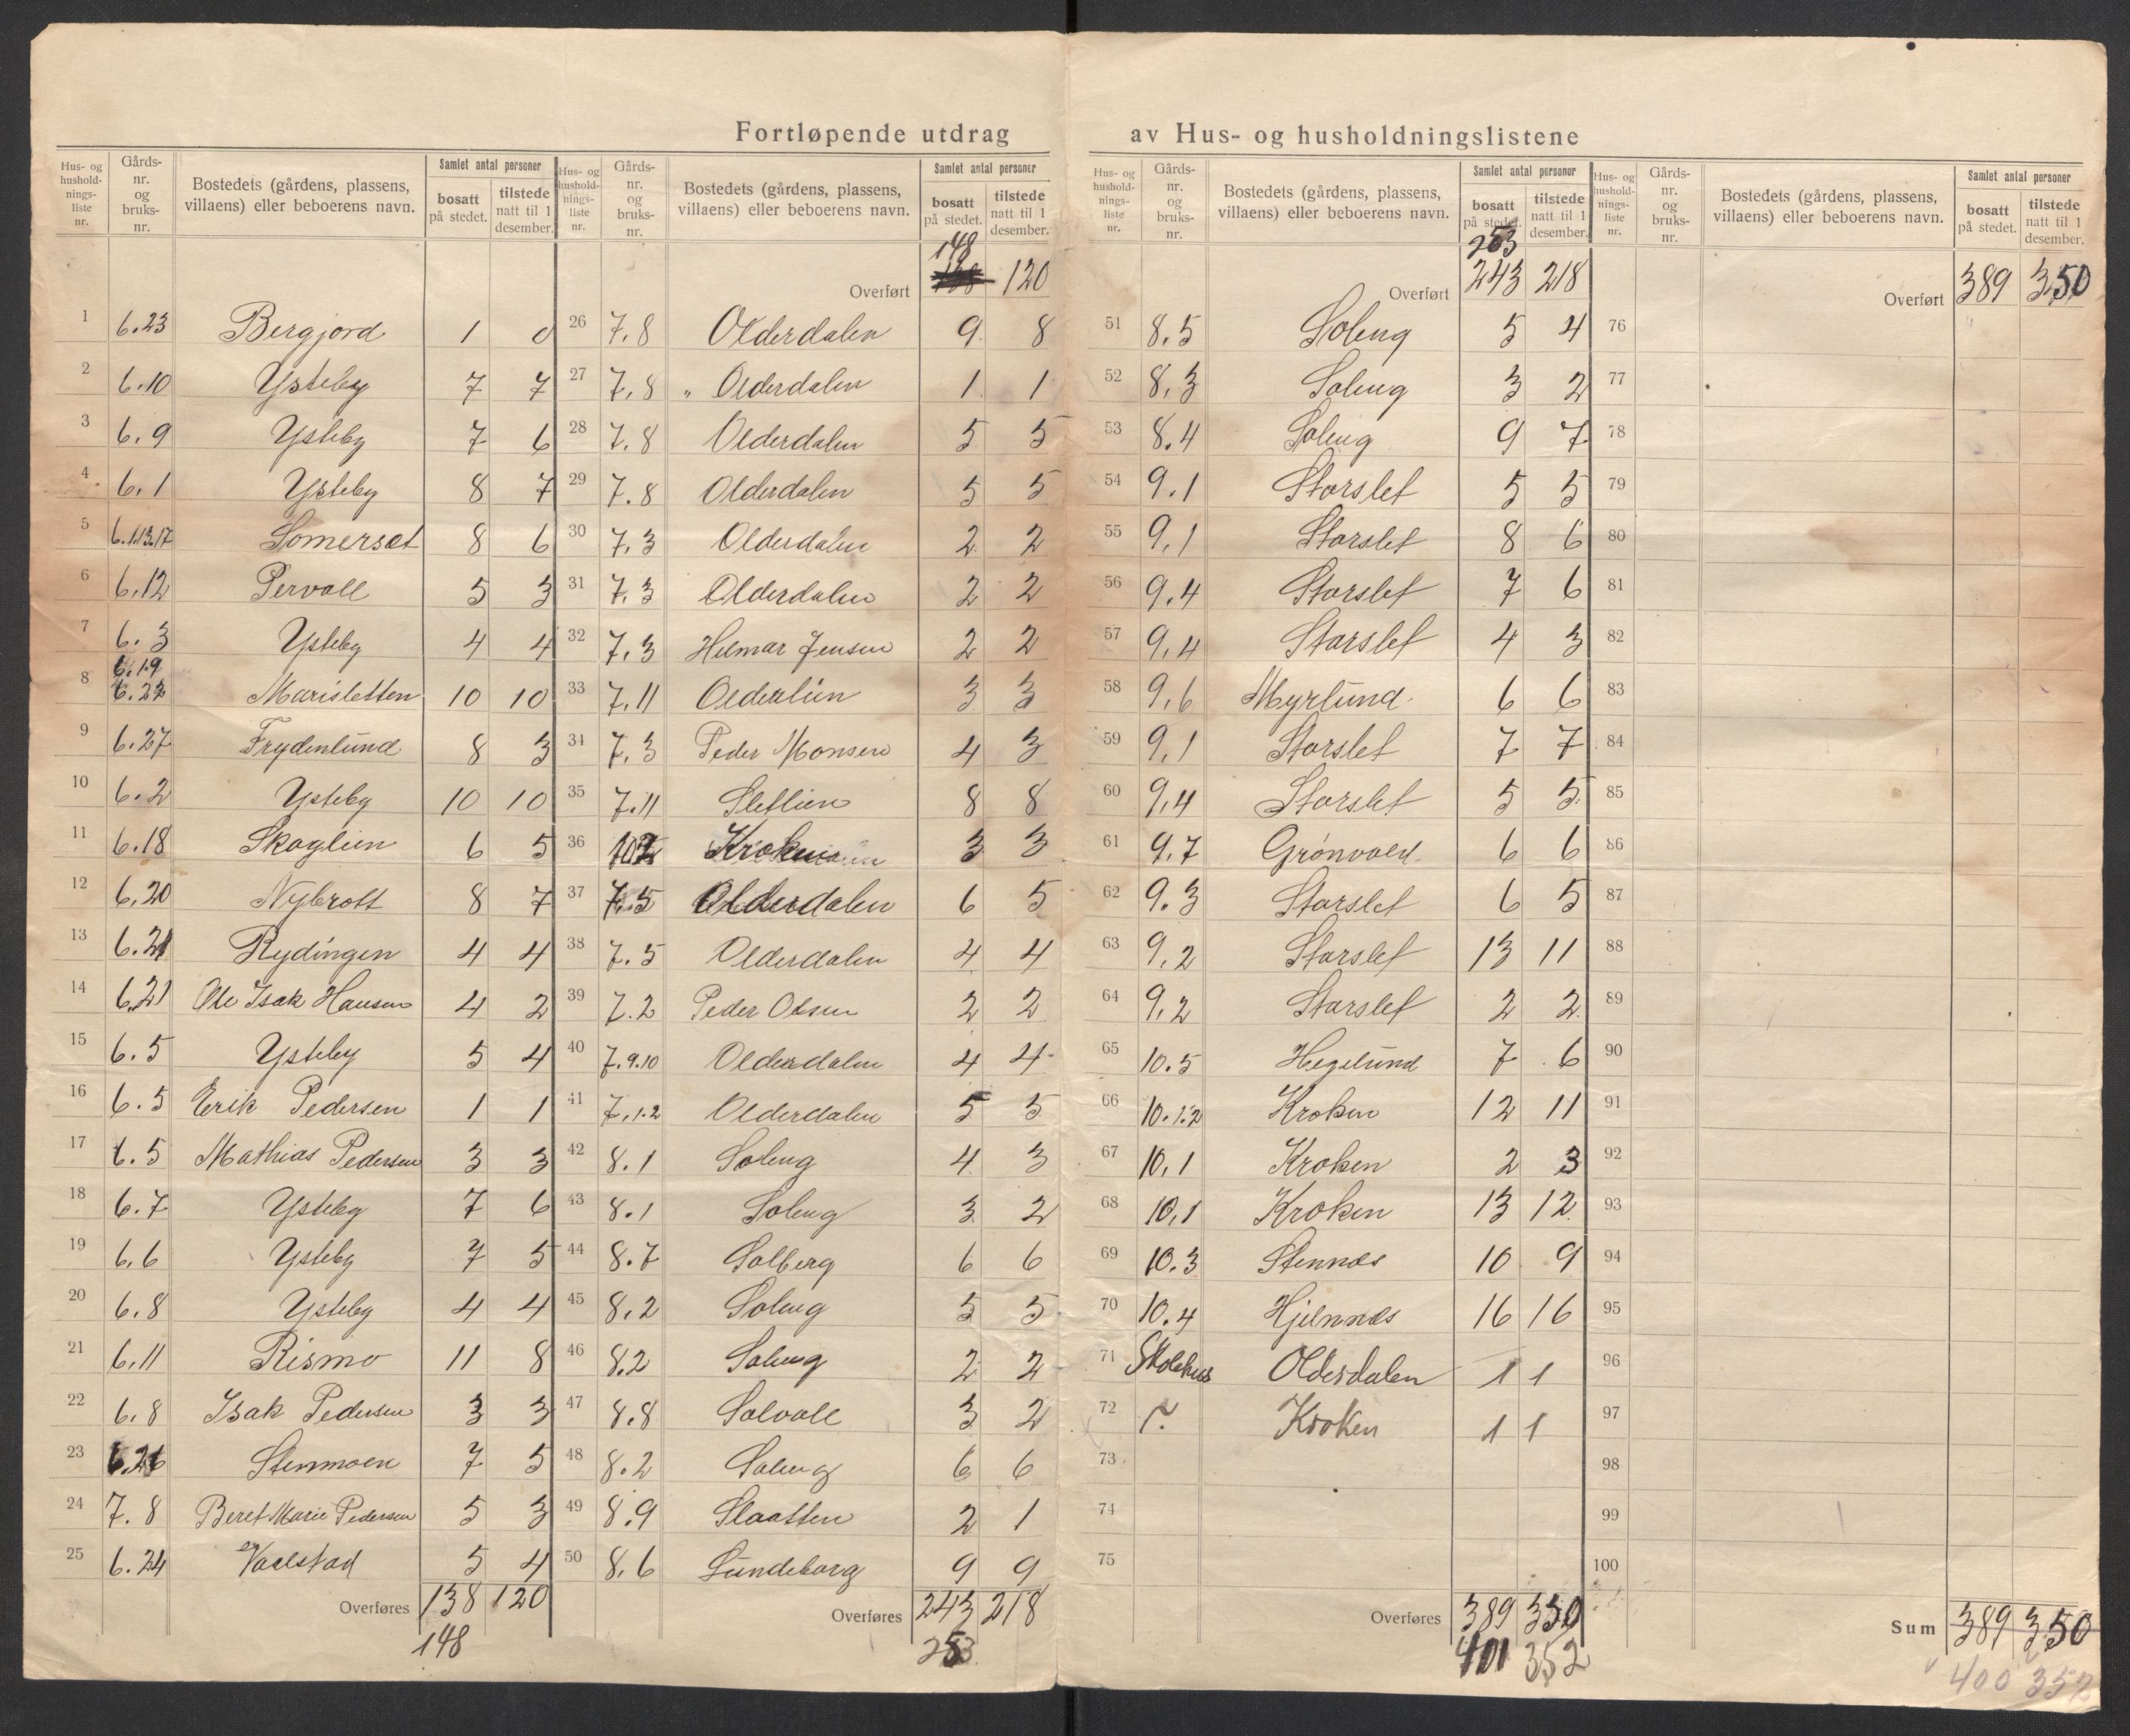 Fortløpende utdrag av Hus- og husholdningslistene
Hus- og hushold-nings-liste nr. Gårds-nr. og bruks-nr. Bostedets (gårdens, plassens, villaens) eller beboerens navn. Samlet antal personer bosatt på stedet. tilstede natt til 1 desember.
1 6.23 Bergjord 1 0
2 6.10 Ysteby 7 7
3 6.9 Ysteby 7 6
4 6.1 Ysteby 8 7
5 6.1.13.17 Somerset 8 6
6 6.12 Pervoll 5 3
7 6.3 Ysteby 4 4
6.19
8 6.22 Marisletten 10 10
9 6.27 Frydenlund 8 3
10 6.2 Ysteby 10 10
11 6.18 Skoglien 6 5
12 6.20 Nybrott 8 7
13 6.21 Rydingen 4 4
14 6.21 Ole Isak Hansen 4 2
15 6.5 Ysteby 5 4
16 6.5 Erik Pedersen 1 1
17 6.5 Mathias Pedersen 3 3
18 6.7 Ysteby 7 6
19 6.6 Ysteby 7 5
20 6.8 Ysteby 4 4
21 6.11 Rismo 11 8
22 6.8 Isak Pedersen 3 3
23 6.26 Stenmoen 7 5
24 7.8 Beret Marie Pedersen 5 3
25 6.24 Vollstad 5 4
Overføres 138 120
148
Hus- og hushold-nings-liste nr. Gårds-nr. og bruks-nr. Bostedets (gårdens, plassens, villaens) eller beboerens navn. Samlet antal personer bosatt på stedet. tilstede natt til 1 desember.
148
Overført 138 120
26 7.8 Olderdalen 9 8
27 7.8 " Olderdalen 1 1
28 7.8 Olderdalen 5 5
29 7.8 Olderdalen 5 5
30 7.3 Olderdalen 2 2
31 7.3 Olderdalen 2 2
32 7.3 Helmar Jensen 2 2
33 7.11 Olderlien 3 3
34 7.3 Peder Monsen 4 3
35 7.11 Sletlien 8 8
36 Kroken 3 3
37 7.5 Olderdalen 6 5
38 7.5 Olderdalen 4 4
39 7.2 Peder Olsen 2 2
40 7.9.10 Olderdalen 4 4
41 7.1.2 Olderdalen 5 5
42 8.1 Soleng 4 3
43 8.1 Soleng 3 2
44 8.7 Solberg 6 6
45 8.2 Soleng 5 5
46 8.2 Soleng 2 2
47 8.8 Solvoll 3 2
48 8.2 Soleng 6 6
49 8.9 Slaatten 2 1
50 8.6 Lundeborg 9 9
Overføres 243 218
253
Hus- og hushold-nings-liste nr. Gårds-nr. og bruks-nr. Bostedets (gårdens, plassens, villaens) eller beboerens navn. Samlet antal personer bosatt på stedet. tilstede natt til 1 desember.
253
Overført 243 218
51 8.5 Soleng 5 4
52 8.3 Soleng 3 2
53 8.4 Soleng 9 7
54 9.1 Storslet 5 5
55 9.1 Storslet 8 6
56 9.4 Storslet 7 6
57 9.4 Storslet 4 3
58 9.6 Myrlund 6 6
59 9.1 Storslet 7 7
60 9.4 Storslet 5 5
61 9.7 Grönvold 6 6
62 9.3 Storslet 6 5
63 9.2 Storslet 13 11
64 9.2 Storslet 2 2
65 10.5 Hegelund 7 6
66 10.1.2 Kroken 12 11
67 10.1 Kroken 2 3
68 10.1 Kroken 13 12
69 10.3 Stennes 10 9
70 10.4 Hjelnnes 16 16
71 Skolehus Olderdalen 1 1
72 Kroken 1 1
73
74
75
Overføres 389 350
401 352
Hus- og hushold-nings-liste nr. Gårds-nr. og bruks-nr. Bostedets (gårdens, plassens, villaens) eller beboerens navn. Samlet antal personer bosatt på stedet. tilstede natt til 1 desember.
Overført 389 350
76
77
78
79
80
81
82
83
84
85
86
87
88
89
90
91
92
93
94
95
96
97
98
99
100
Sum 389 350
400 352